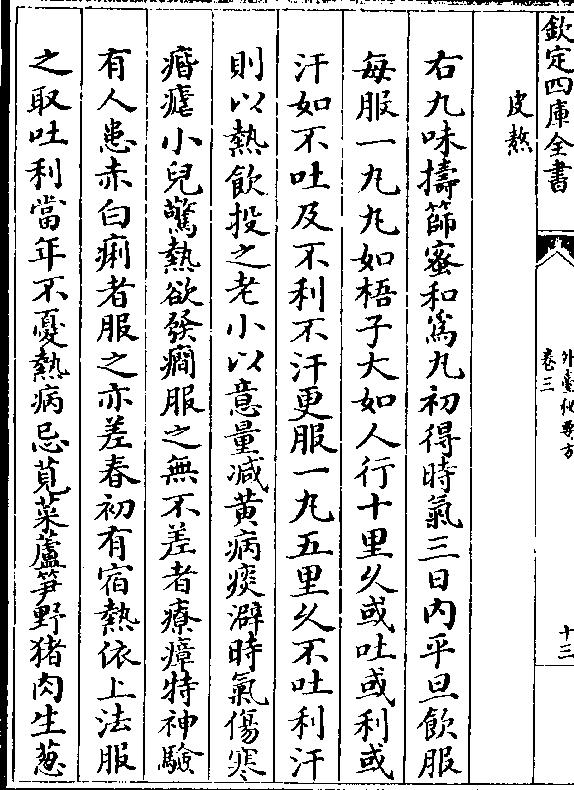 欽定四庫全書
外臺秘要方
卷三
十三
皮熬
右九味擣篩蜜和為丸初得時氣三日內平旦飲服
每服一丸丸如梧子大如人行十里久或吐或利或
汗如不吐及不利不汗更服一丸五里久不吐利汗
則以熱飲投之老小以意量減黃病痰澼時氣傷寒
痻瘧小兒驚熱欲發癎服之無不差者療瘴特神驗
有人患赤白痢者服之亦差春初有宿熱依上法服
之取吐利當年不憂熱病忌莧菜蘆笋野猪肉生葱